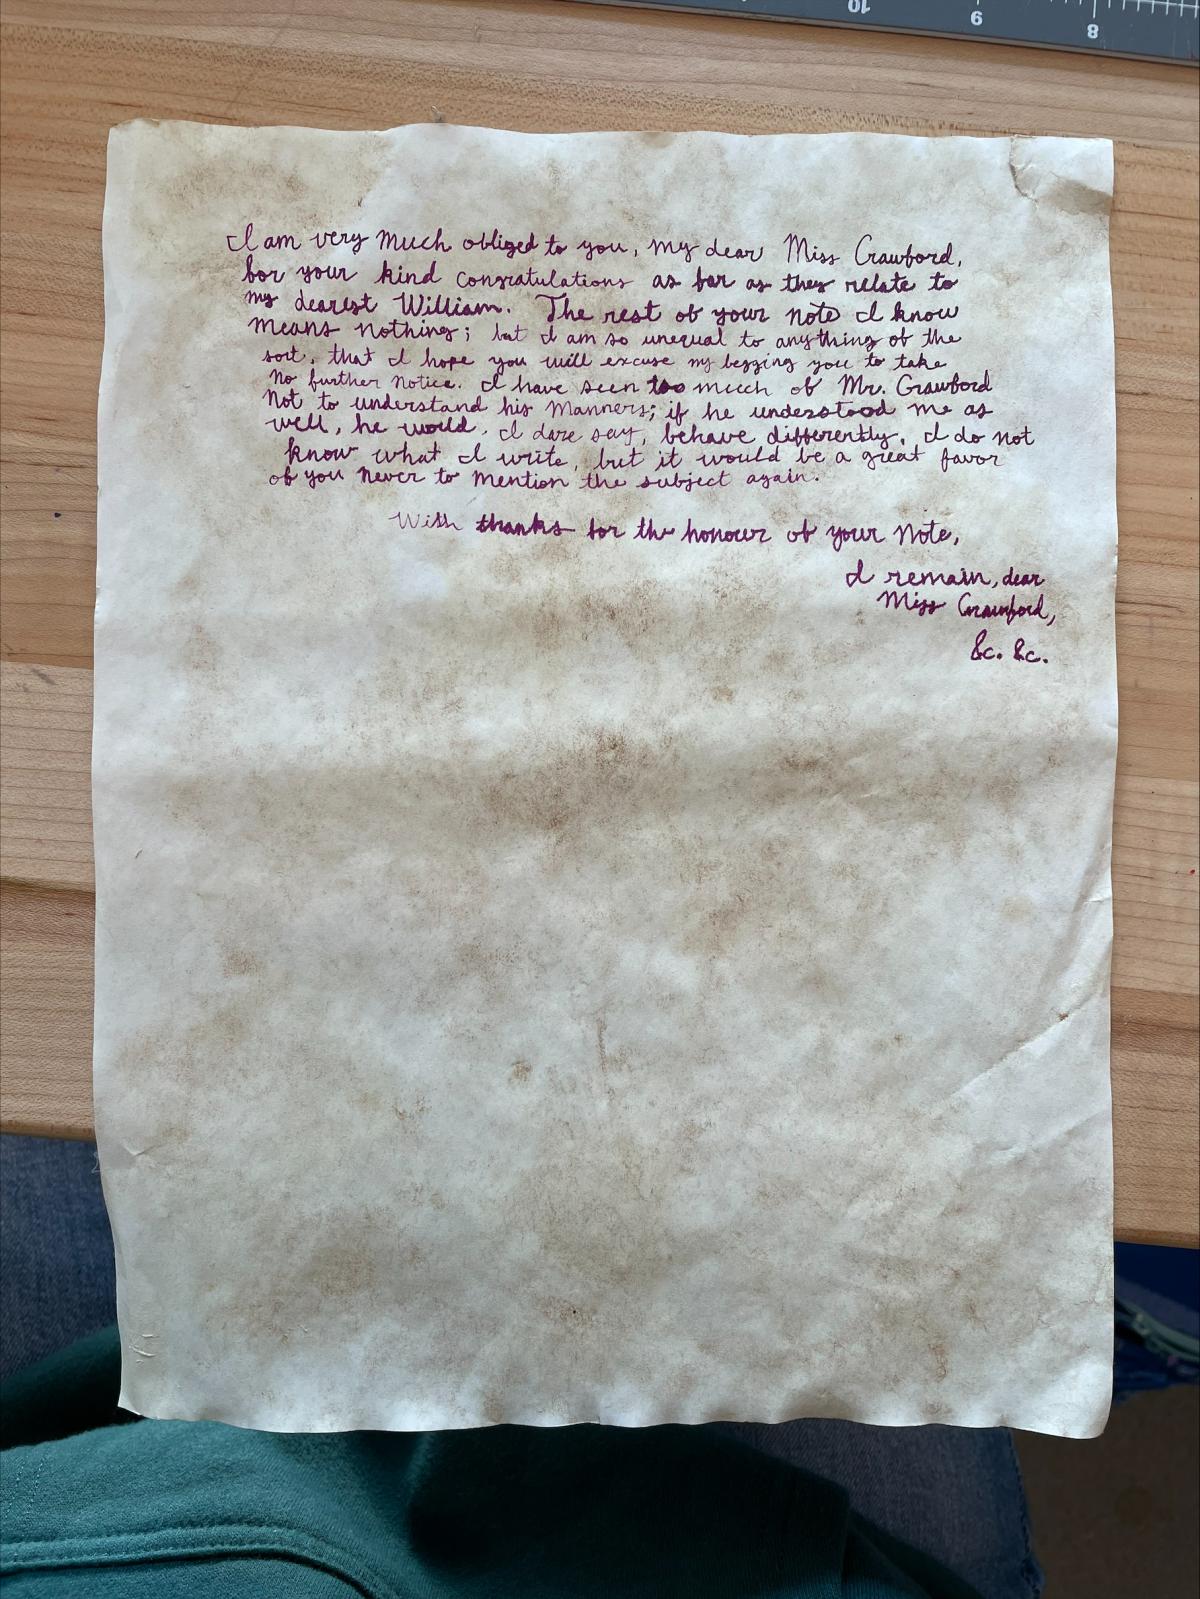 10 9 8
I am very much obliged to you, my dear Miss Crawford,
for your kind congratulations as far as they relate to
my dearest William. The rest of your note I know
means nothing; but I am so unequal to anything of the
sort, that I hope you will excuse my begging you to take
no further notice. I have seen too much of Mr. Crawford
not to understand his manners; if he understood me as
well, he would, I dare say, behave differently. I do not
know what I write, but it would be a great favor
of you never to mention the subject again.
With thanks for the honour of your note,
I remain, dear
Miss Crawford,
&c. &c.